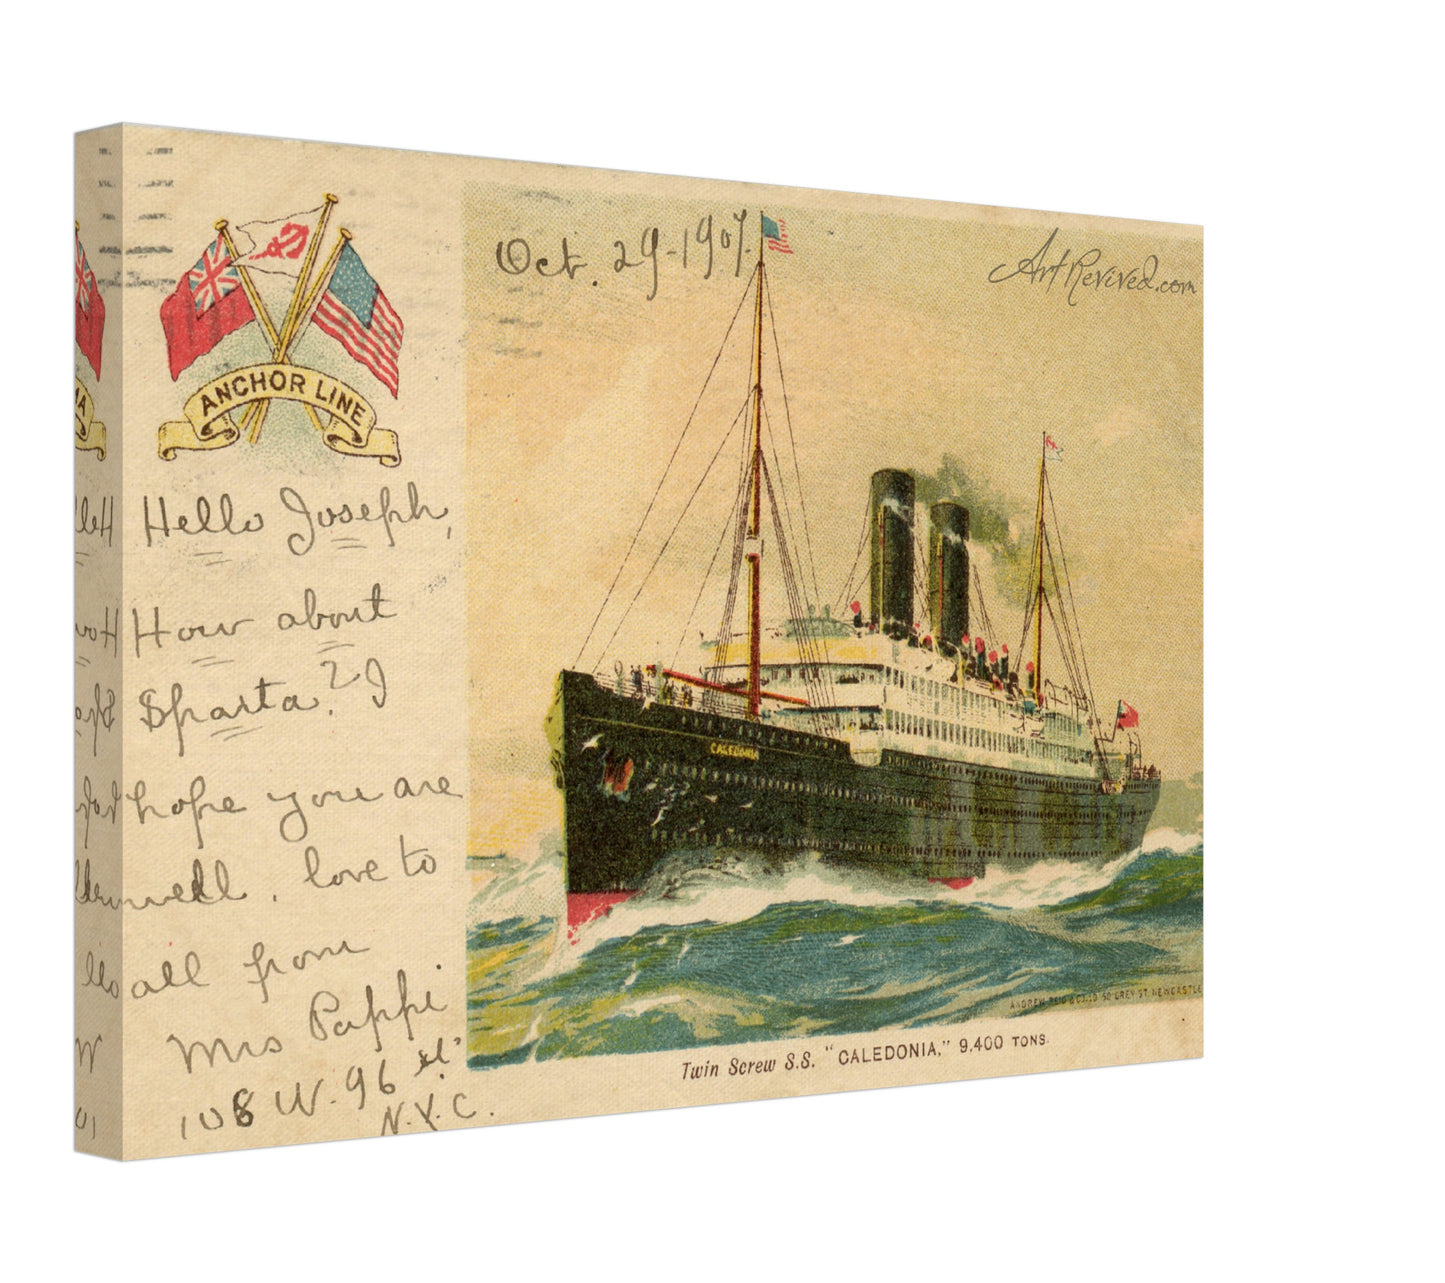 Oct. 29-1907.
ArtRevived.com
ANCHOR LINE
Hello Joseph,
How about
Sparta? I
hope you are
well. love to
all from
Mrs Pappi
108 W. 96 st.
N.Y.C.
CALEDONIA
ANDREW REID & CO. LD 50 GREY ST. NEWCASTLE
Twin Screw S.S. "CALEDONIA," 9,400 TONS.